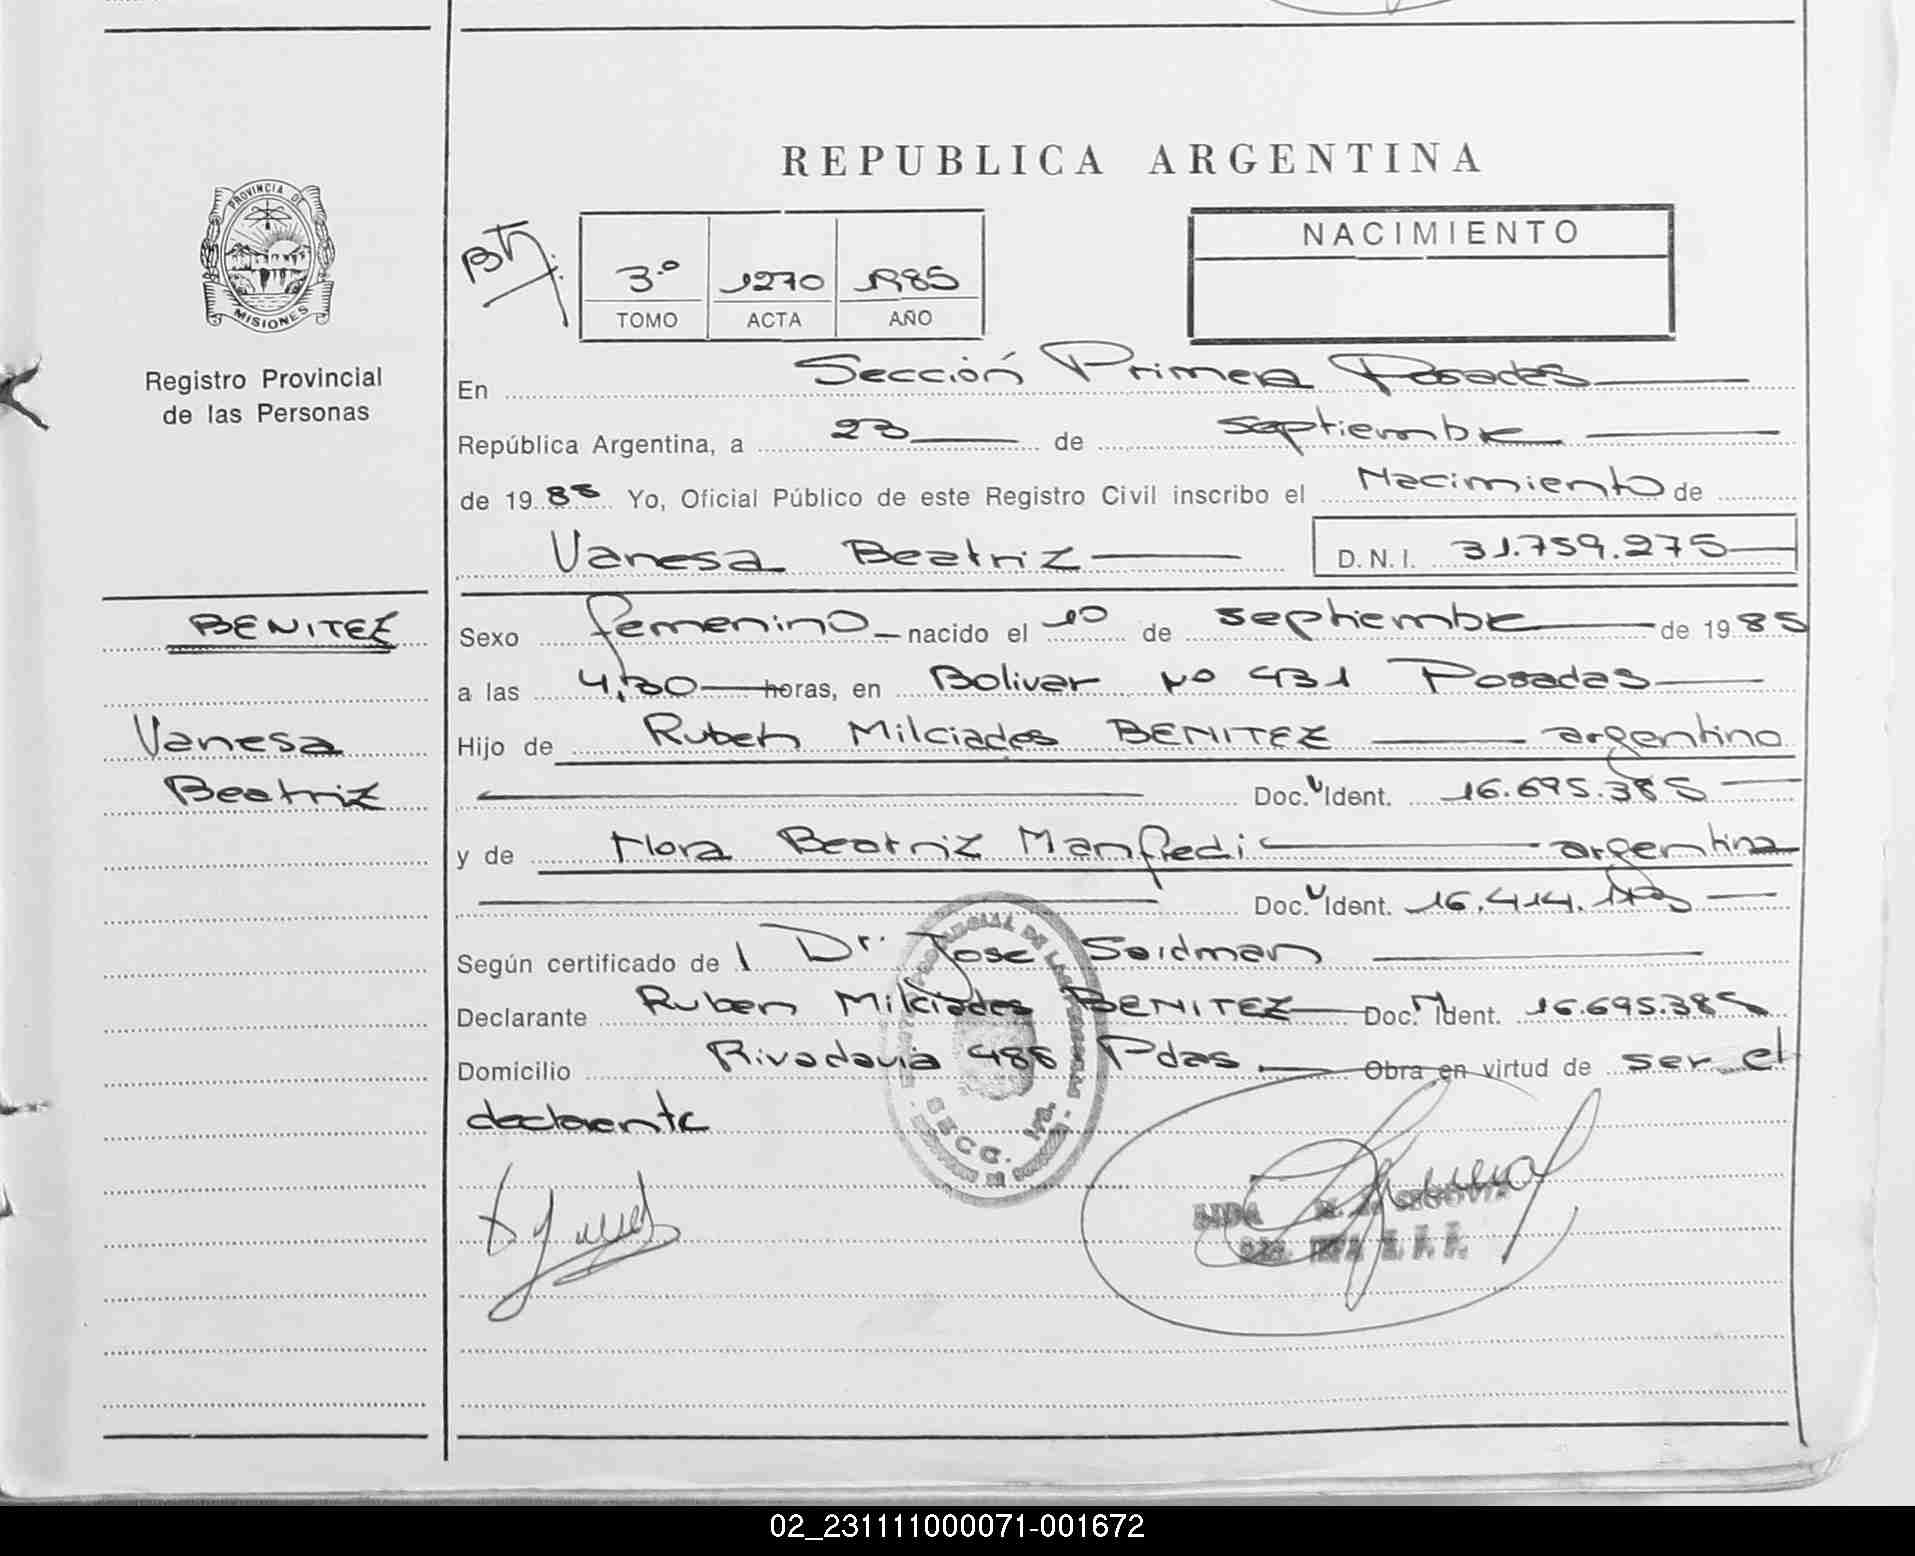 REPUBLICA ARGENTINA
PROVINCIA DE
MISIONES
Registro Provincial
de las Personas
3.º 1270 1985
TOMO ACTA AÑO
NACIMIENTO
En Sección Primera Posadas
República Argentina, a 23 de septiembre
de 19 85 Yo, Oficial Público de este Registro Civil inscribo el Nacimiento de
Vanesa Beatriz D.N.I. 31.759.275
BENITEZ
Vanesa
Beatriz
Sexo femenino nacido el 10 de septiembre de 19 85
a las 4,30 horas, en Bolivar Nº 431 Posadas
Hijo de Ruben Milciades BENITEZ argentino
Doc. Ident. 16.695.385
y de Flora Beatriz Manfredi argentina
Doc. Ident. 16.414.
Según certificado de l Dr. Jose Seidman
Declarante Ruben Milciades BENITEZ Doc. Ident. 16.695.385
Domicilio Rivadavia 486 Pdas. Obra en virtud de ser el
declarante
SECC. 1ra.
SEGOVIA
02_231111000071-001672